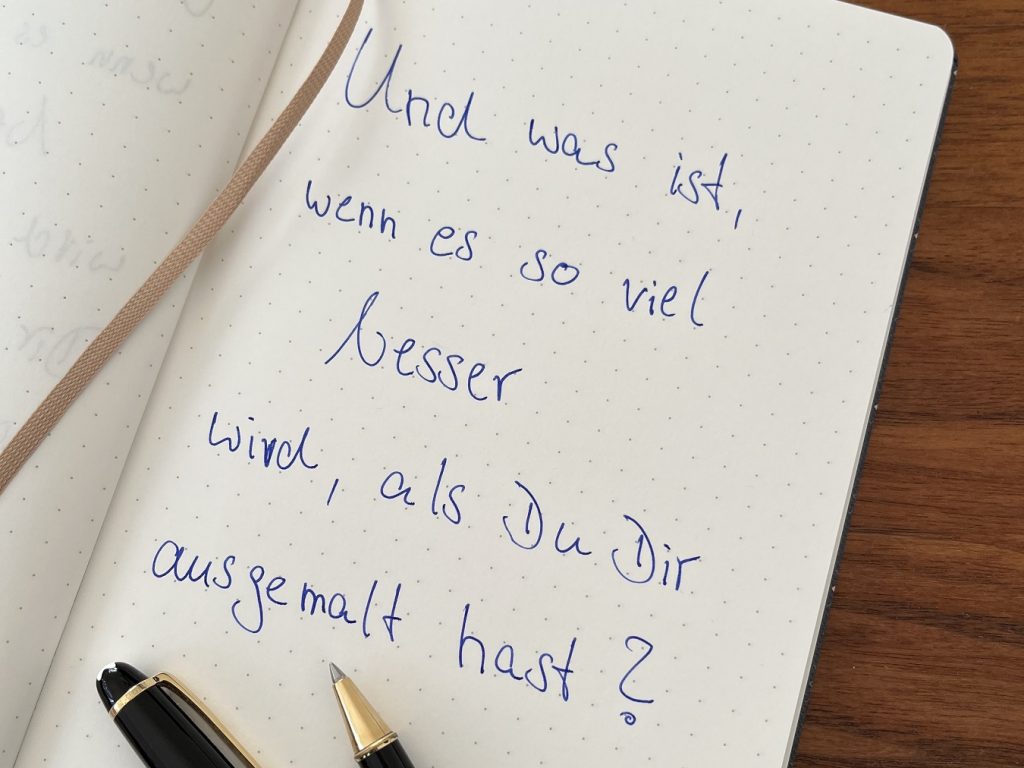 Und was ist,
wenn es so viel
besser
wird, als Du Dir
ausgemalt hast?